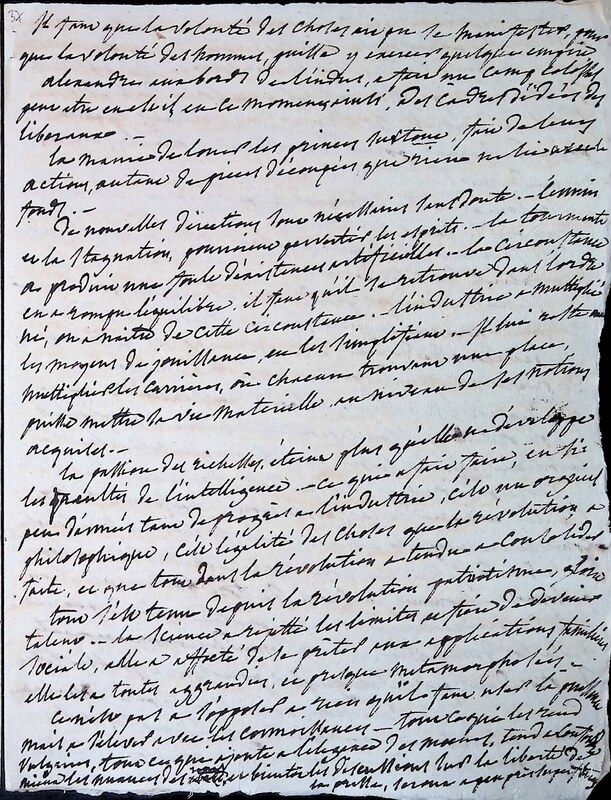 Il faut que la volonté des choses ait pu se manifester, pour
que la volonté des hommes, puisse y exercer quelque empire
alexandre aux bords de l'indus, a fait un camp colossal
peut etre en est il en ce moment ainsi, des cadres d'idées des
liberaux. —
la manie de louer les princes surtout, fait de leurs
actions, autant de pieces découpées que rien ne lie
fonds. —
De nouvelles directions sont nécessaires sans doute. — l'ennui
et la stagnation, pourroient pervertir les esprits. — la tourmente
a produit une foule d'existences artificielles. — la circonstance
en a rompu l'equilibre, il faut qu'il se retrouve dans l'ordre
né, ou a naitre de cette circonstance. — l'industrie a multiplié
les moyens de jouissance, en les simplifiant. — Il lui reste a
multiplier les carrieres, où chacun trouvant une place,
puisse mettre la vie materielle au niveau de ses notions
acquises. —
la passion des richesses, éteint plus qu'elle ne développe
les facultés de l'intelligence — ce qui a fait faire, en si
peu d'années tant de progrès a l'industrie, c'est une origine
philosophique, c'est l'égalité des choses que la révolution a
faite, et que tout dans la révolution a tendu a consolider
tout s'est tenu depuis la révolution patriotisme, gloire
talent. — la science a rejetté les limites
sociale, elle a affecté de se prêter aux applications familieres
elle les a toutes aggrandies, et presque metamorphosées. —
Ce n'est pas a s'opposer a rien qu'il faut user la puissance
mais a s'élever avec les connoissances — tout ce qui les rend
vulgaires, tout ce qui ajoute a l'élégance des moeurs, tend a
mieux les nuances des sur la liberté de
la presse, sera a peu près